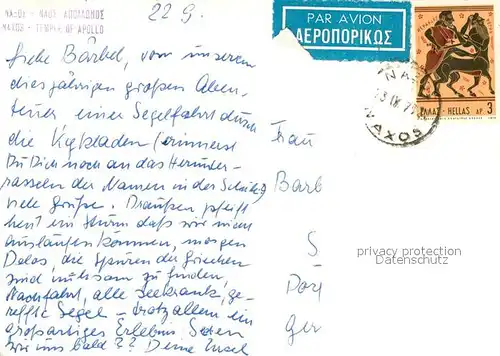 ΝΑΞΟΣ - ΝΑΟΣ ΑΠΟΛΛΩΝΟΣ
NAXOS - TEMPLE OF APOLLO
22 9.
PAR AVION
ΑΕΡΟΠΟΡΙΚΩΣ
ΕΛΛΑΣ - HELLAS ΔΡ. 3
NAXOS
liebe Bärbel, von unserem
diesjährigen großen Aben-
teuer einer Segelfahrt durch
die Kykladen (erinnerst
Du Dich noch an das Herunter-
rasseln der Namen in der Schule)
viele Grüße. Draußen pfeift
heut ein Sturm daß wir nicht
auslaufen können, morgen
Delos, die Spuren der Griechen
sind mühsam zu finden,
Nachtfahrt, alle seekrank, ge-
reffte Segel - trotz allem ein
großartiges Erlebnis. Sehen
wir uns bald?? Deine Insel
Frau
Barb
S
Dorf
Ger
privacy protection
Datenschutz